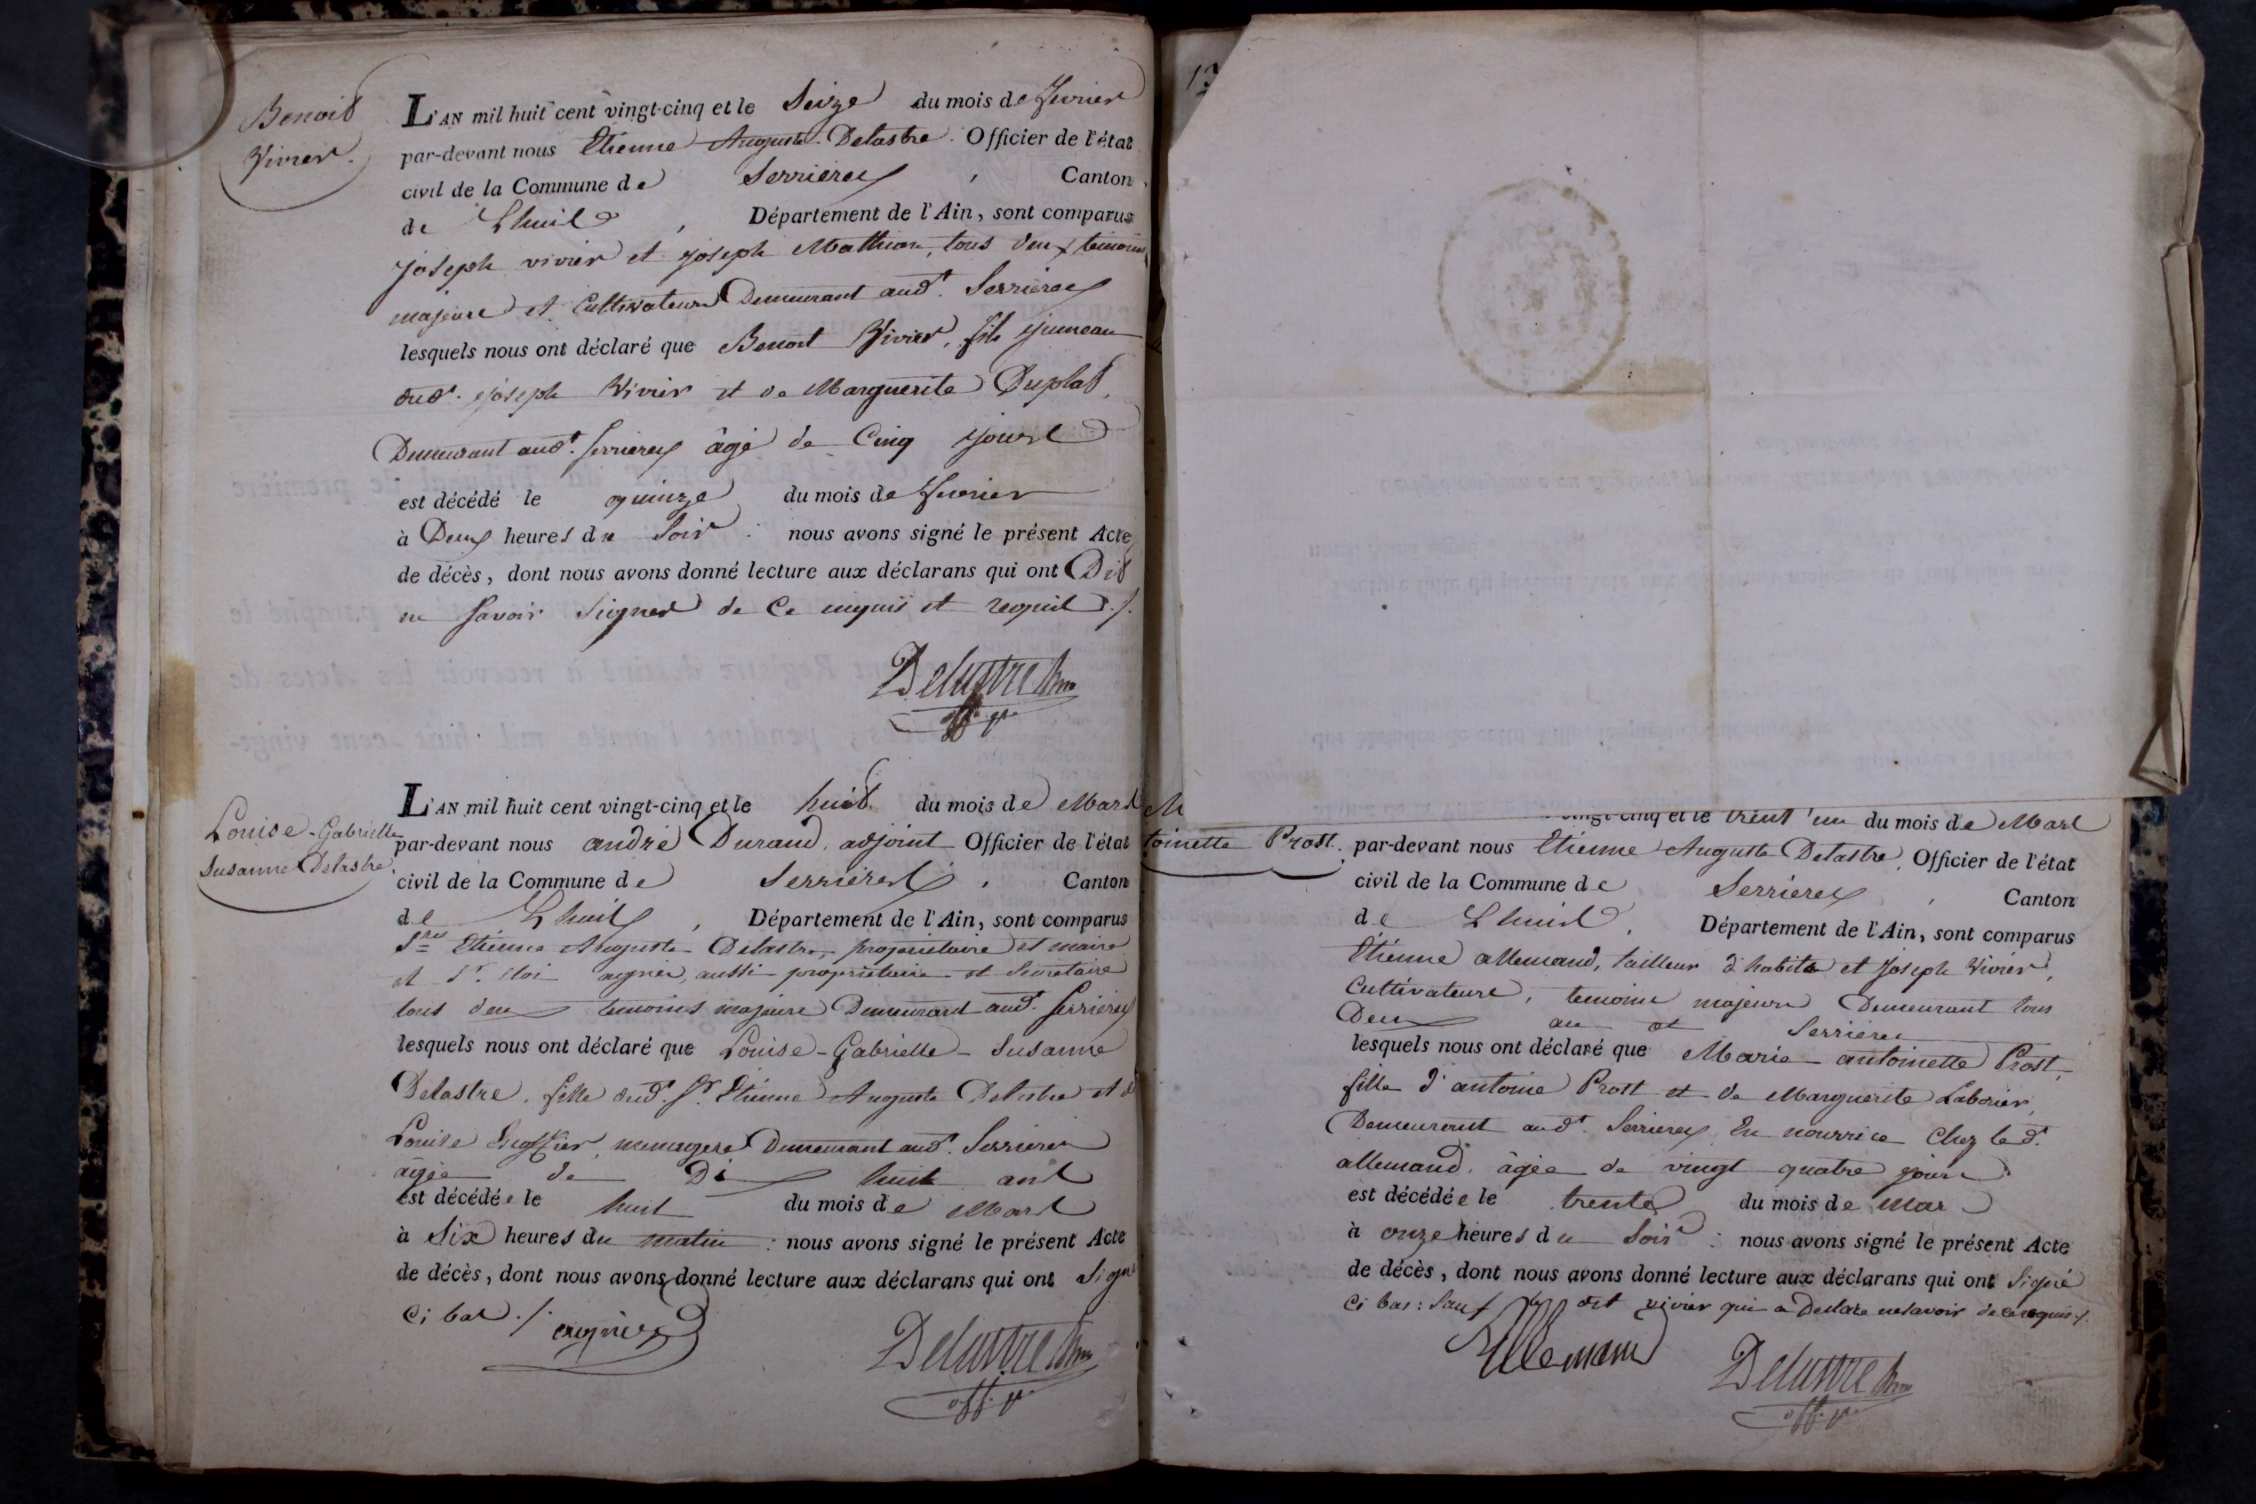 Benoit
Vivier.
L'AN mil huit cent vingt-cinq et le Seize du mois de fevrier
par-devant nous Etienne Auguste Delastre. Officier de l'état
civil de la Commune de Serrieres, Canton
de Lhuis, Département de l'Ain, sont comparus
joseph vivier et joseph Mathian, tous deux temoins
majeurs et Cultivateurs Demeurant aud.t Serrieres
lesquels nous ont déclaré que Benoit Vivier, fils jumeau
dud.t joseph Vivier et de Marguerite Duplat,
Demeurant aud.t Serrieres âgé de Cinq jours
est décédé le quinze du mois de fevrier
à Deux heures du Soir : nous avons signé le présent Acte
de décès, dont nous avons donné lecture aux déclarans qui ont Dit
ne Savoir Signer de Ce enquis et requis ./.
Delastre
Louise-Gabrielle
Susanne Delastre.
L'AN mil huit cent vingt-cinq et le huit du mois de Mars
par-devant nous andré Durand, adjoint Officier de l'état
civil de la Commune de Serrieres, Canton
de Lhuis, Département de l'Ain, sont comparus
S.rs Etienne Auguste Delastre, proprietaire et maire
et S.r Eloi augnier, aussi proprietaire et Secretaire
tous deux temoins majeurs Demeurant aud.t Serrieres
lesquels nous ont déclaré que Louise-Gabrielle-Susanne
Delastre, fille dud.t S.r Etienne Auguste Delastre et d
Louise menagere Demeurant aud.t Serrieres
âgée de Dix huit ans
est décédée le huit du mois de Mars
à Six heures du matin : nous avons signé le présent Acte
de décès, dont nous avons donné lecture aux déclarans qui ont Signé
Ci bas ./.
augnier
Delastre
13
M
toinette Prost.
vingt-cinq et le trent'un du mois de Mars
par-devant nous Etienne Auguste Delastre, Officier de l'état
civil de la Commune de Serrieres, Canton
de Lhuis, Département de l'Ain, sont comparus
Etienne allemand, tailleur d'habits et Joseph Vivier,
Cultivateurs, temoins majeurs Demeurant tous
Deux au dt Serrieres
lesquels nous ont déclaré que Marie-antoinette Prost,
fille d'antoine Prost et de Marguerite Laborier,
Demeurant aud.t Serrieres, En nourrice Chez led.t
allemand, âgée de vingt quatre jours
est décédée le trente du mois de Mars
à onze heures du Soir : nous avons signé le présent Acte
de décès, dont nous avons donné lecture aux déclarans qui ont Signé
Ci bas : Sauf le dit vivier qui a Declare ne savoir de ce requis ./.
Allemand
Delastre